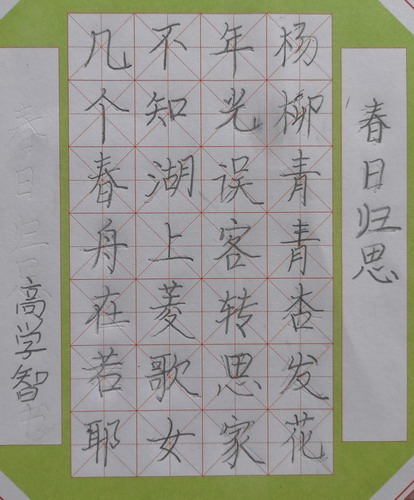 春日归思
杨柳青青杏发花
年光误客转思家
不知湖上菱歌女
几个春舟在若耶
高学智